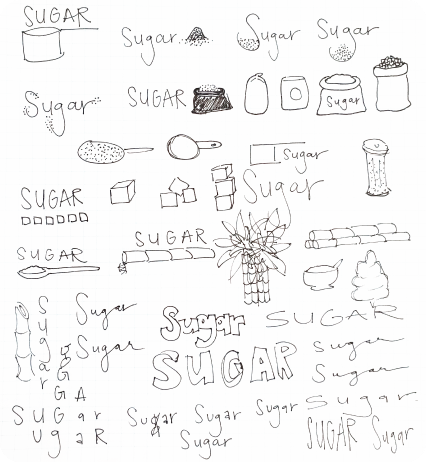 SUGAR
Sugar
Sugar
Sugar
Sugar
SUGAR
Sugar
Sugar
Sugar
SUGAR
SUGAR
SUGAR
Sugar
Sugar
Sugar
Sugar
SUGAR
SUGAR
Sugar
Sugar
GA
SUGar
ugaR
Sugar
Sugar
Sugar
Sugar
Sugar
SUGAR Sugar